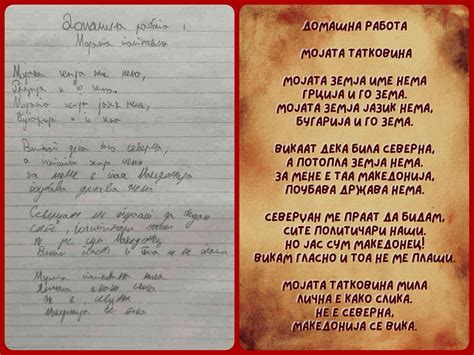 Домашна работа
Мојата татковина
Мојата земја име нема,
Грција и го зема.
Мојата земја јазик нема,
Бугарија и го зема
Викаат дека била северна,
а земја нема.
за мене е таа Македонија
држава нема.
ме праат да бидам
политичари наши
јас сум Македонец
Викам и тоа не ме плаши
Мојата татковина мила
како слика
Не е северна
Македонија се вика
ДОМАШНА РАБОТА
МОЈАТА ТАТКОВИНА
МОЈАТА ЗЕМЈА ИМЕ НЕМА
ГРЦИЈА И ГО ЗЕМА.
МОЈАТА ЗЕМЈА ЈАЗИК НЕМА,
БУГАРИЈА И ГО ЗЕМА.
ВИКААТ ДЕКА БИЛА СЕВЕРНА,
А ПОТОПЛА ЗЕМЈА НЕМА.
ЗА МЕНЕ Е ТАА МАКЕДОНИЈА,
ПОУБАВА ДРЖАВА НЕМА.
СЕВЕРЏАН МЕ ПРААТ ДА БИДАМ,
СИТЕ ПОЛИТИЧАРИ НАШИ.
НО ЈАС СУМ МАКЕДОНЕЦ!
ВИКАМ ГЛАСНО И ТОА НЕ МЕ ПЛАШИ.
МОЈАТА ТАТКОВИНА МИЛА
ЛИЧНА Е КАКО СЛИКА.
НЕ Е СЕВЕРНА,
МАКЕДОНИЈА СЕ ВИКА.